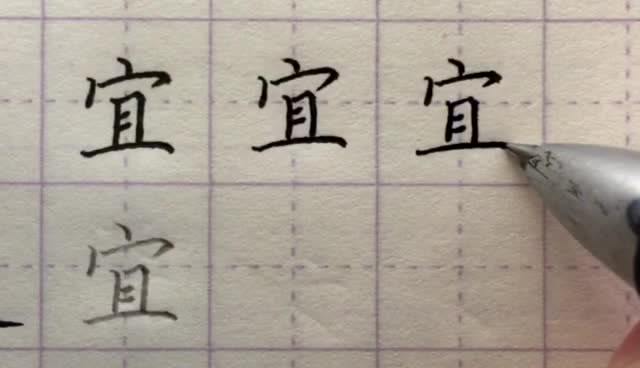 宜宜宜
宜